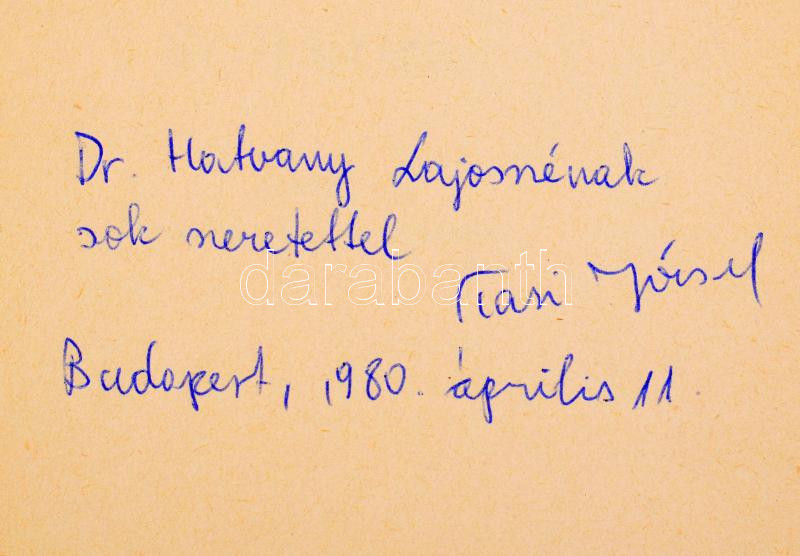 Dr. Hatvany Lajosnénak
sok szeretettel
darabanth
Tasi József
Budapest, 1980. április 11.